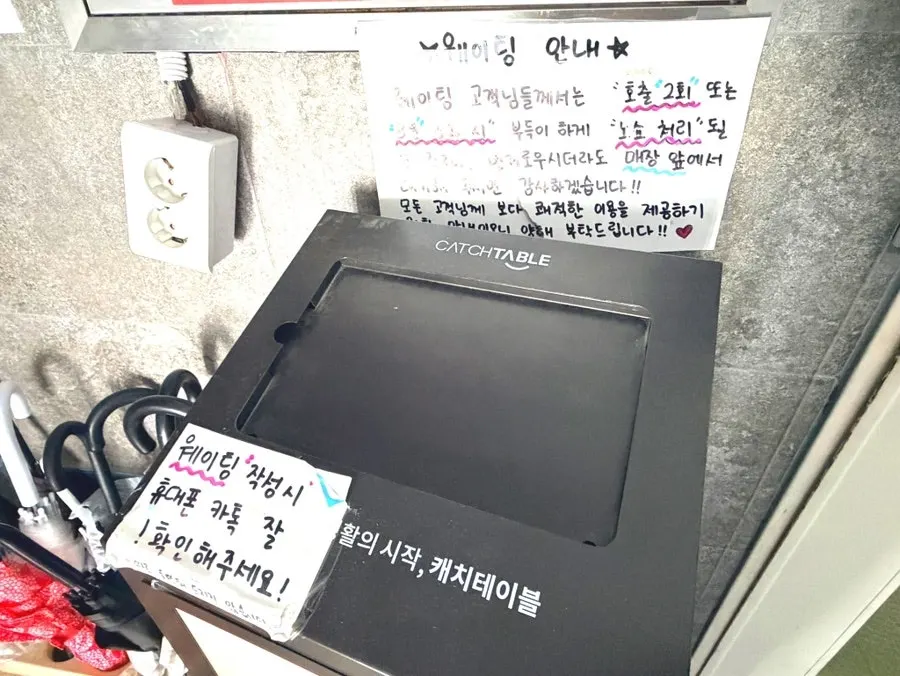 웨이팅 안내
웨이팅 고객님들께서는 "호출 "2회" 또는
부득이 하게 "노쇼 처리" 될
번거로우시더라도 매장 앞에서
감사하겠습니다!!
모든 고객님께 보다 쾌적한 이용을 제공하기
안내이오니 양해 부탁드립니다!! ♥
CATCHTABLE
웨이팅 "작성시"
휴대폰 카톡 잘
! 확인해주세요!
활의 시작, 캐치테이블